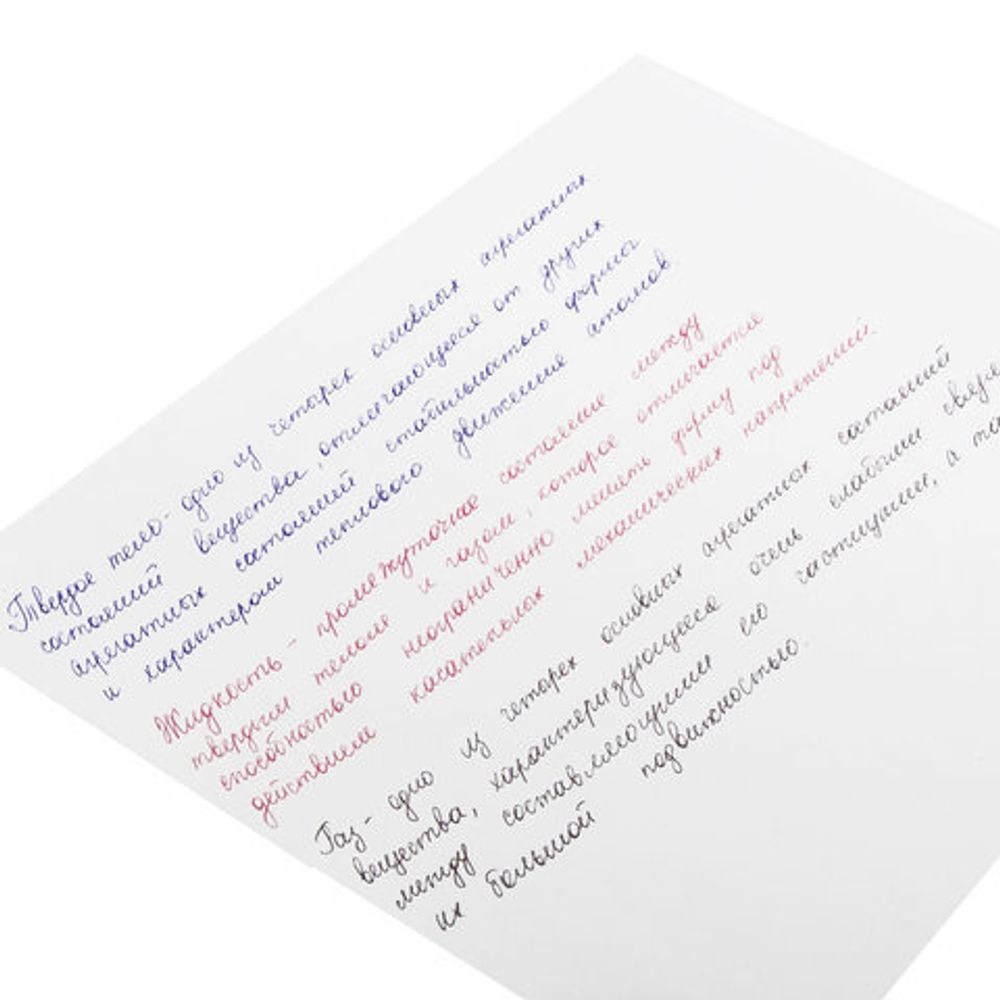 Твердое тело - одно из четырех основных агрегатных
состояний вещества, отличающееся от других
агрегатных состояний стабильностью формы
и характером теплового движения атомов.
Жидкость - промежуточное состояние между
твердым телом и газом, которое отличается
способностью неограниченно менять форму под
действием касательных механических напряжений.
Газ - одно из четырех основных агрегатных состояний
вещества, характеризующееся очень слабыми
между составляющими его частицами, а
их большой подвижностью.